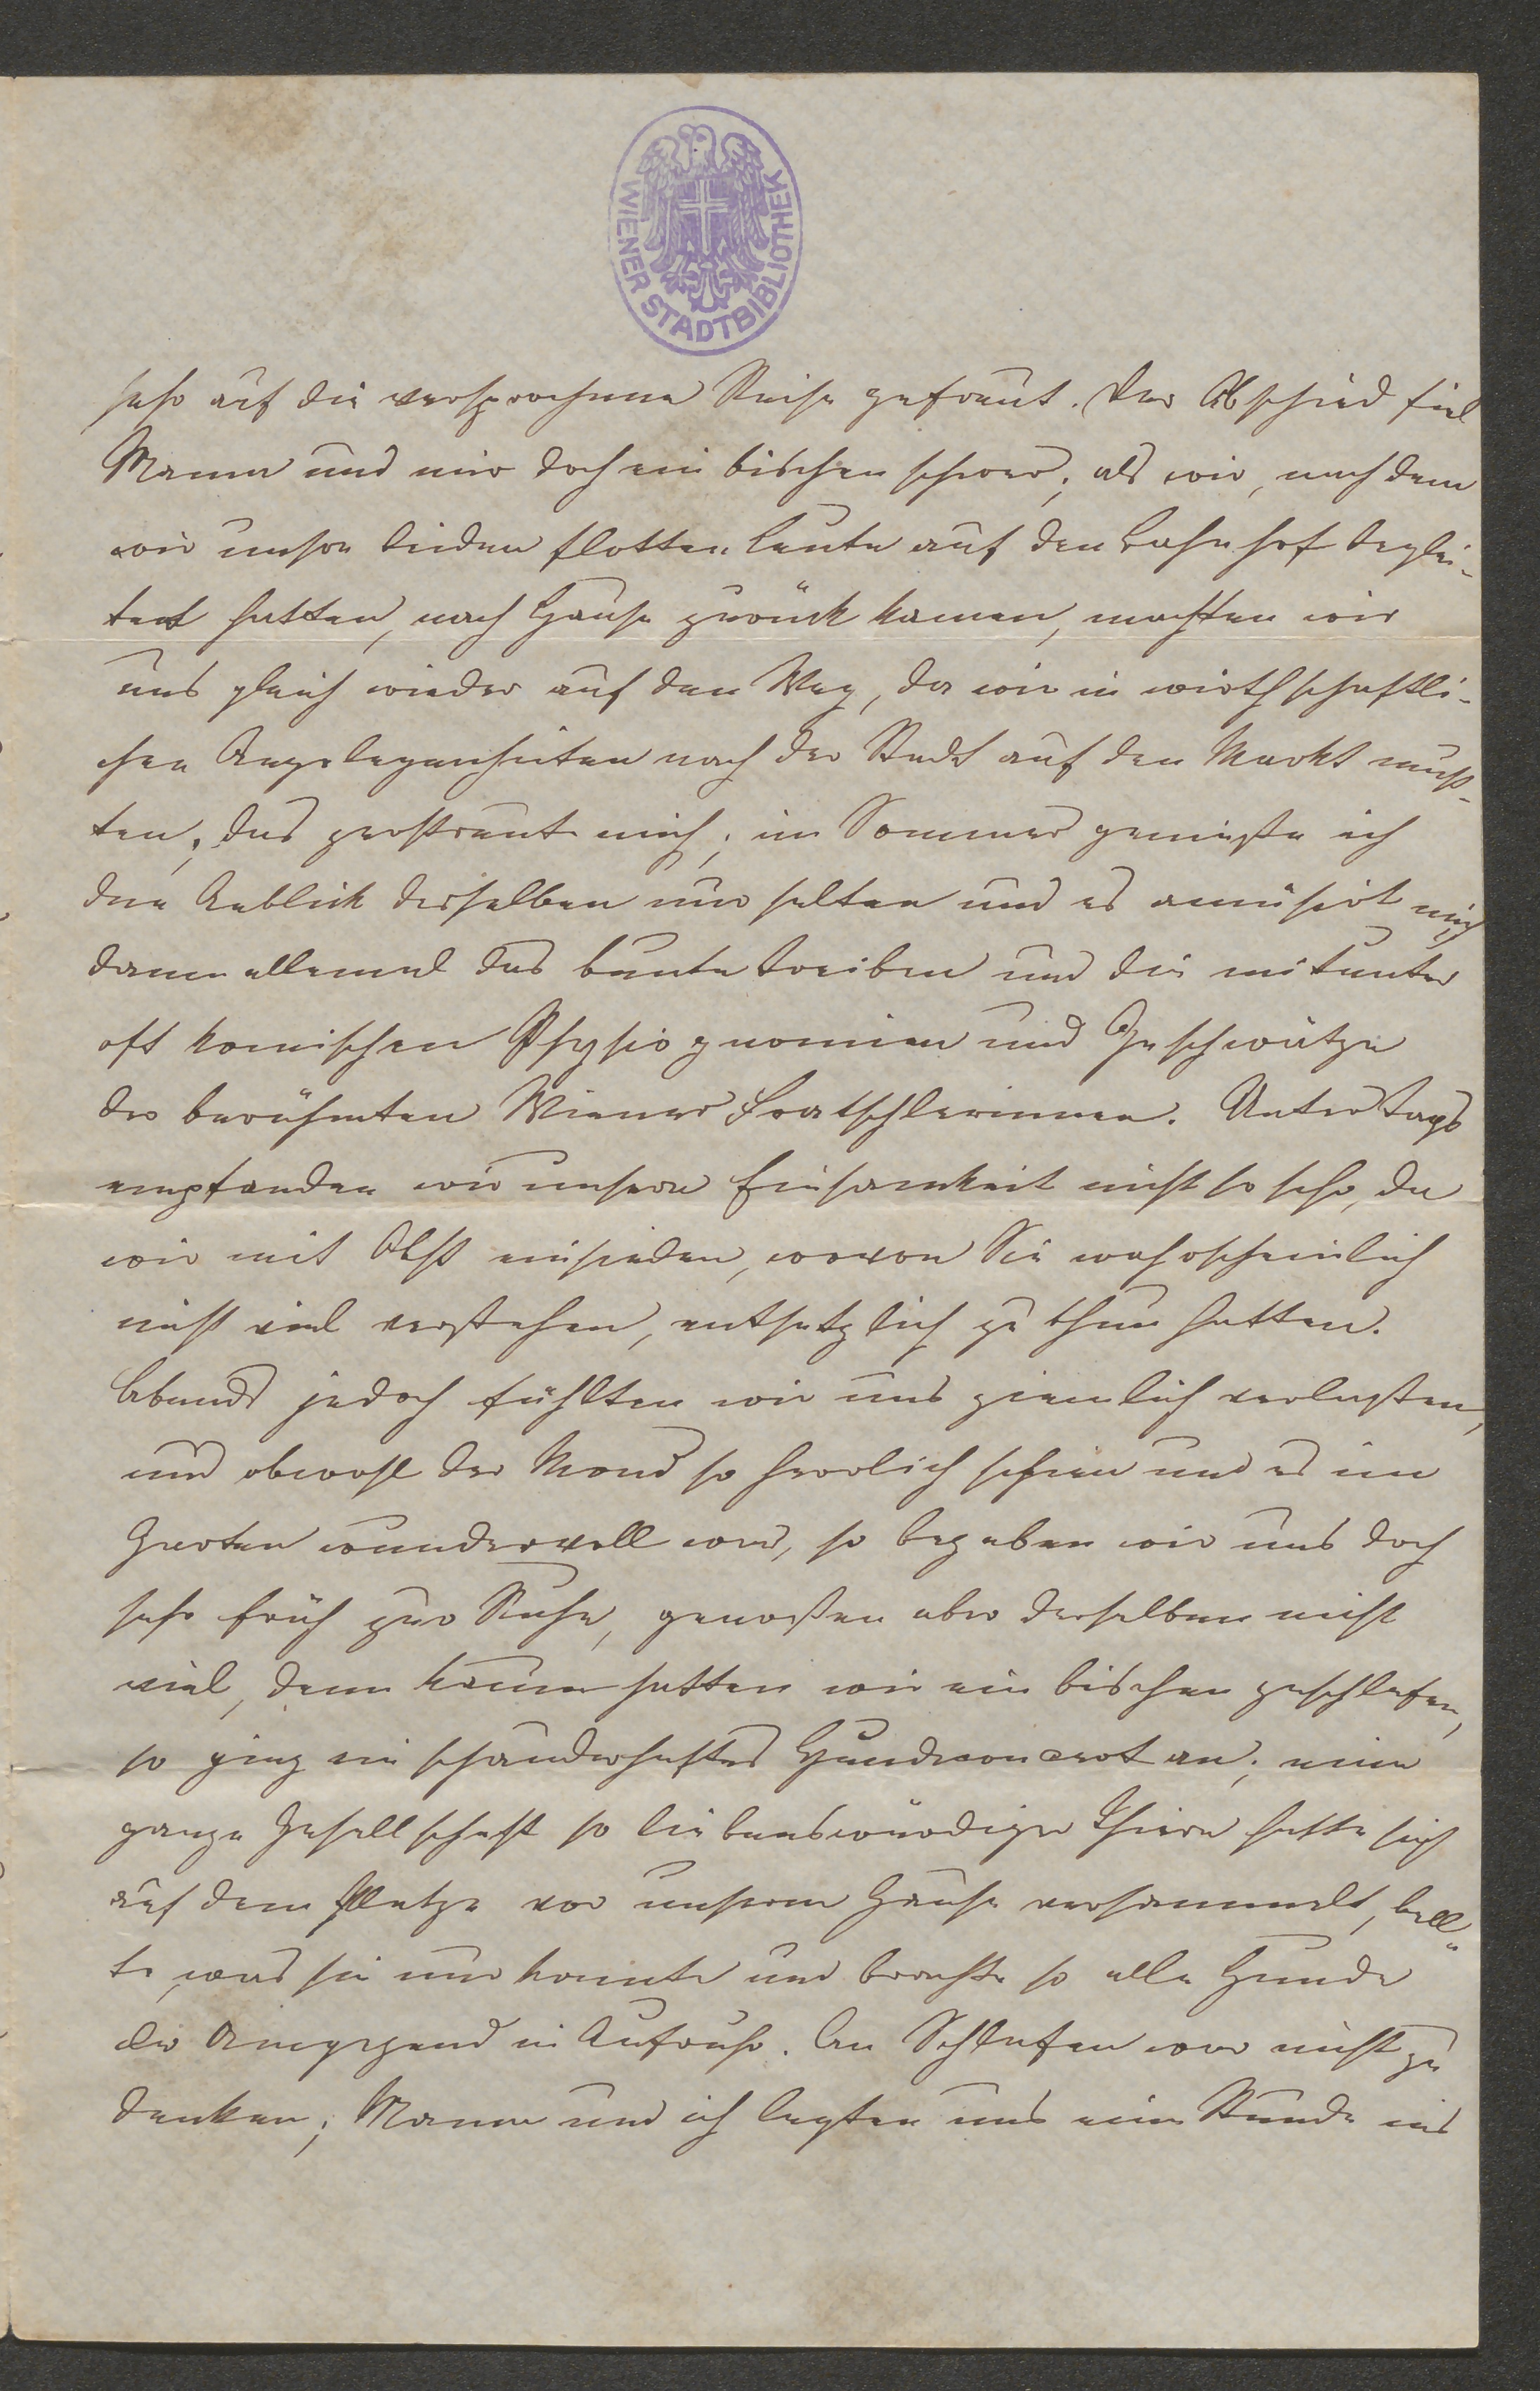 WIENER STADTBIBLIOTHEK
sehr auf die versprochene Reise gefreut. Der Abschied fiel
Mama und mir doch ein bischen schwer; als wir, nach dem
wir unsre beiden flotten Leute auf den Bahnhof beglei-
tet hatten, nach Hause zurück kamen, machten wir
uns gleich wieder auf den Weg, da wir in wirthschaftli-
chen Angelegenheiten nach der Stadt auf den Markt muß-
ten; das zerstreute mich; im Sommer genieße ich
den Anblick desselben nur selten und es amüsirt mich
dann allemal das bunte Treiben und die mitunter
oft komischen Physiognomien und Geschwätze
der berühmten Wiener Fratschlerinnen. Untertags
empfanden wir unsere Einsamkeit nicht so sehr, da
wir mit Obst einsieden, wovon Sie wahrscheinlich
nicht viel verstehen, entsetzlich zu thun hatten.
Abends jedoch fühlten wir uns ziemlich verlassen,
und obwohl der Mond so herrlich schien und es im
Garten wundervoll war, so begaben wir uns doch
sehr früh zur Ruhe, genoßen aber derselben nicht
viel, denn kaum hatten wir ein bischen geschlafen,
so ging ein schauderhaftes Hundeconcert an; eine
ganze Gesellschaft so liebenswürdiger Thiere hatte sich
auf dem Platze vor unserem Hause versammelt, bell-
te, was sie nur konnte und brachte so alle Hunde
der Umgegend in Aufruhr. An Schlafen war nicht zu
denken; Mama und ich legten uns eine Stunde ins